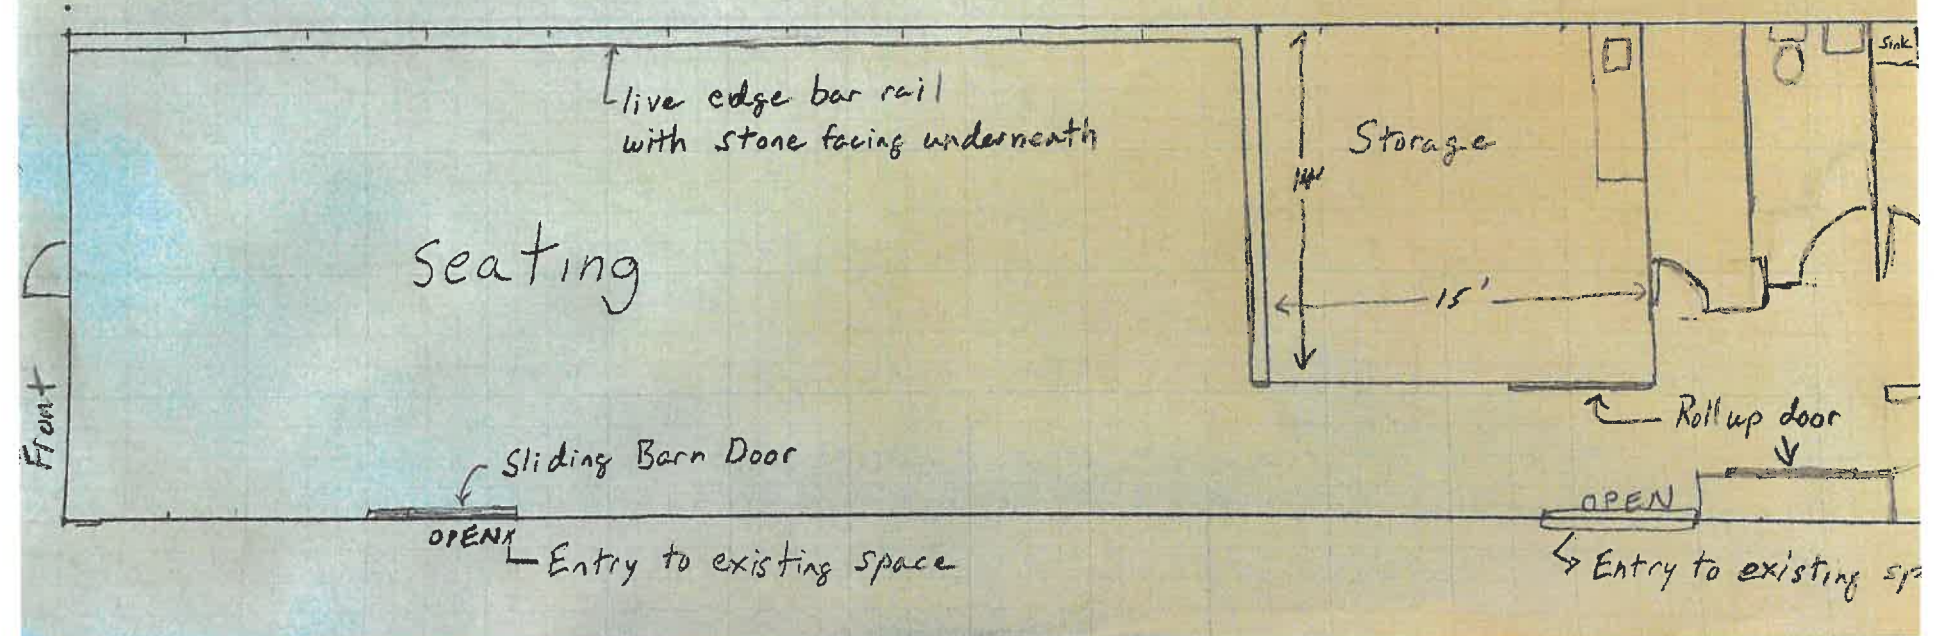 live edge bar rail
with stone facing underneath
Storage
Sink
Seating
15'
Front
Roll up door
Sliding Barn Door
OPEN
OPEN
Entry to existing space
Entry to existing